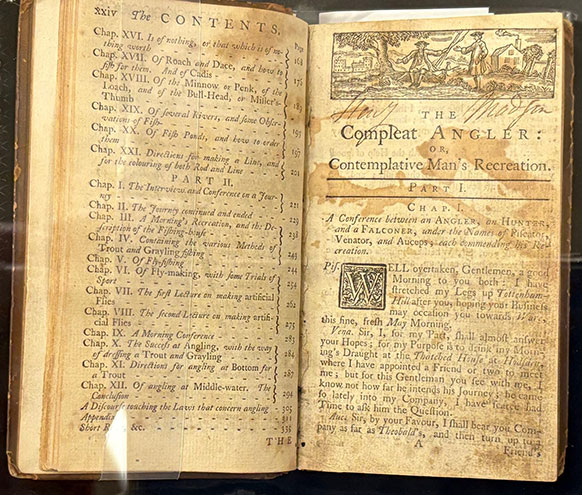 xxiv The CONTENTS.
Page
Chap. XVI. Is of nothing, or that which is of no-
thing worth 168
Chap. XVII. Of Roach and Dace, and how to
fish for them. And of Cadis 175
Chap. XVIII. Of the Minnow or Penk, of the
Loach, and of the Bull-Head, or Miller's-
Thumb
Chap. XIX. Of several Rivers, and some Obser-
vations of Fish
Chap. XX. Of Fish Ponds, and how to order
them 197
Chap. XXI. Directions for making a Line, and
for the colouring of both Rod and Line
PART II.
Chap. I. The Interview and Conference on a Jour-
ney
Chap. II. The Journey continued and ended 221
Chap. III. A Morning's Recreation, and the De-
scription of the Fishing-house 238
Chap. IV. Containing the various Methods of
Trout and Grayling fishing 241
Chap. V. Of Fly-fishing 244
Chap. VI. Of Fly-making, with some Trials of
Sport 254
Chap. VII. The first Lecture on making artificial
Flies 262
Chap. VIII. The second Lecture on making artifi-
cial Flies 275
Chap. IX. A Morning Conference
Chap. X. The Success at Angling, with the way
of dressing a Trout and Grayling 284
Chap. XI. Directions for angling at Bottom for
a Trout 287
Chap. XII. Of angling at Middle-water. The
Conclusion 294
A Discourse touching the Laws that concern angling 305
Appendix
Short Rules &c. 335
THE
THE
Compleat ANGLER:
OR,
Contemplative Man's Recreation.
PART I.
CHAP. I.
A Conference between an ANGLER, an HUNTER,
and a FALCONER, under the Names of Piscator,
Venator, and Auceps; each commending his Re-
creation.
Pisc. WELL overtaken, Gentlemen, a good
Morning to you both; I have
stretched my Legs up Tottenham-
Hill after you, hoping your Business
may occasion you towards Ware
this fine, fresh May Morning.
Vena. Sir, I, for my Part, shall almost answer
your Hopes; for my Purpose is to drink my Morn-
ing's Draught at the Thatched House at Hodsden,
where I have appointed a Friend or two to meet
me; but for this Gentleman you see with me, I
know not how far he intends his Journey; he came
so lately into my Company, I have scarce had
Time to ask him the Question.
Auc. Sir, by your Favour, I shall bear you Com-
pany as far as Theobald's, and then turn up to a
A Friend's